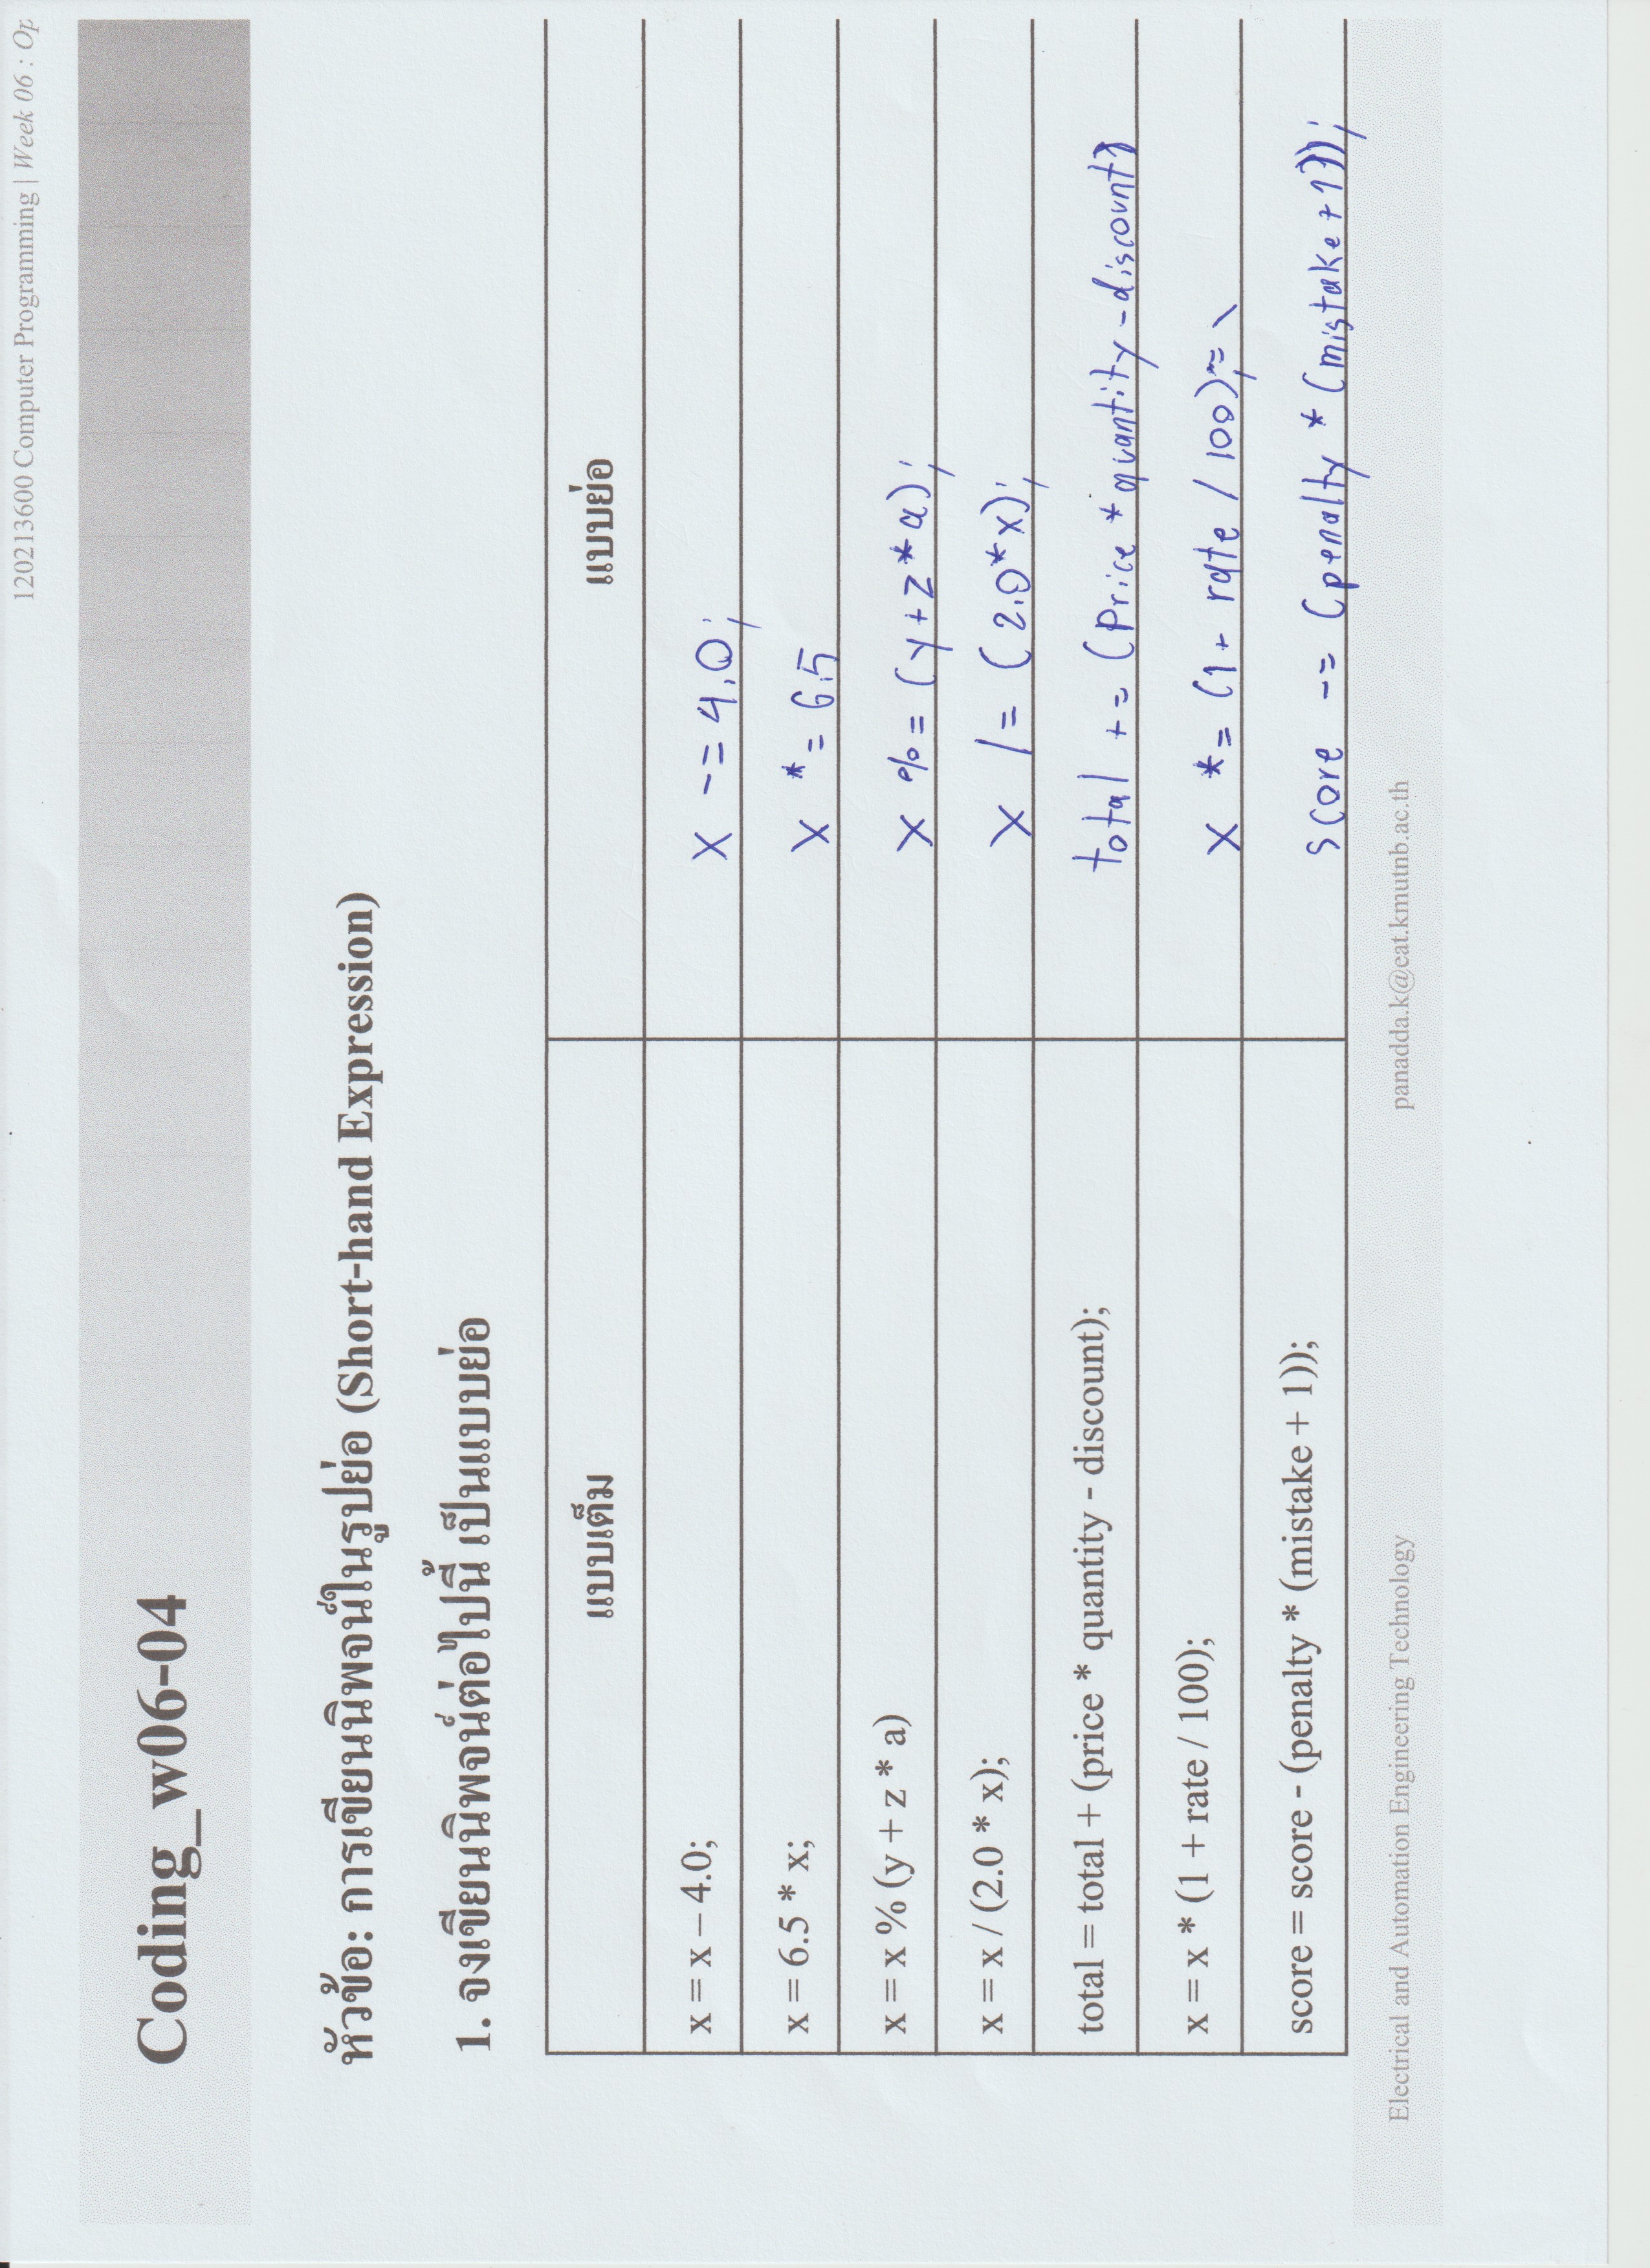 120213600 Computer Programming | Week 06 : Op
Coding_w06-04
หัวข้อ: การเขียนนิพจน์ในรูปย่อ (Short-hand Expression)
1. จงเขียนนิพจน์ต่อไปนี้ เป็นแบบย่อ
แบบเต็ม แบบย่อ
x = x – 4.0; x -= 4.0;
x = 6.5 * x; x *= 6.5
x = x % (y + z * a) x %= (y+z*a);
x = x / (2.0 * x); x /= (2.0*x);
total = total + (price * quantity - discount); total += (Price * quantity - discount)
x = x * (1 + rate / 100); x *= (1+ rate / 100);
score = score - (penalty * (mistake + 1)); score -= (penalty * (mistake + 1));
Electrical and Automation Engineering Technology panadda.k@eat.kmutnb.ac.th